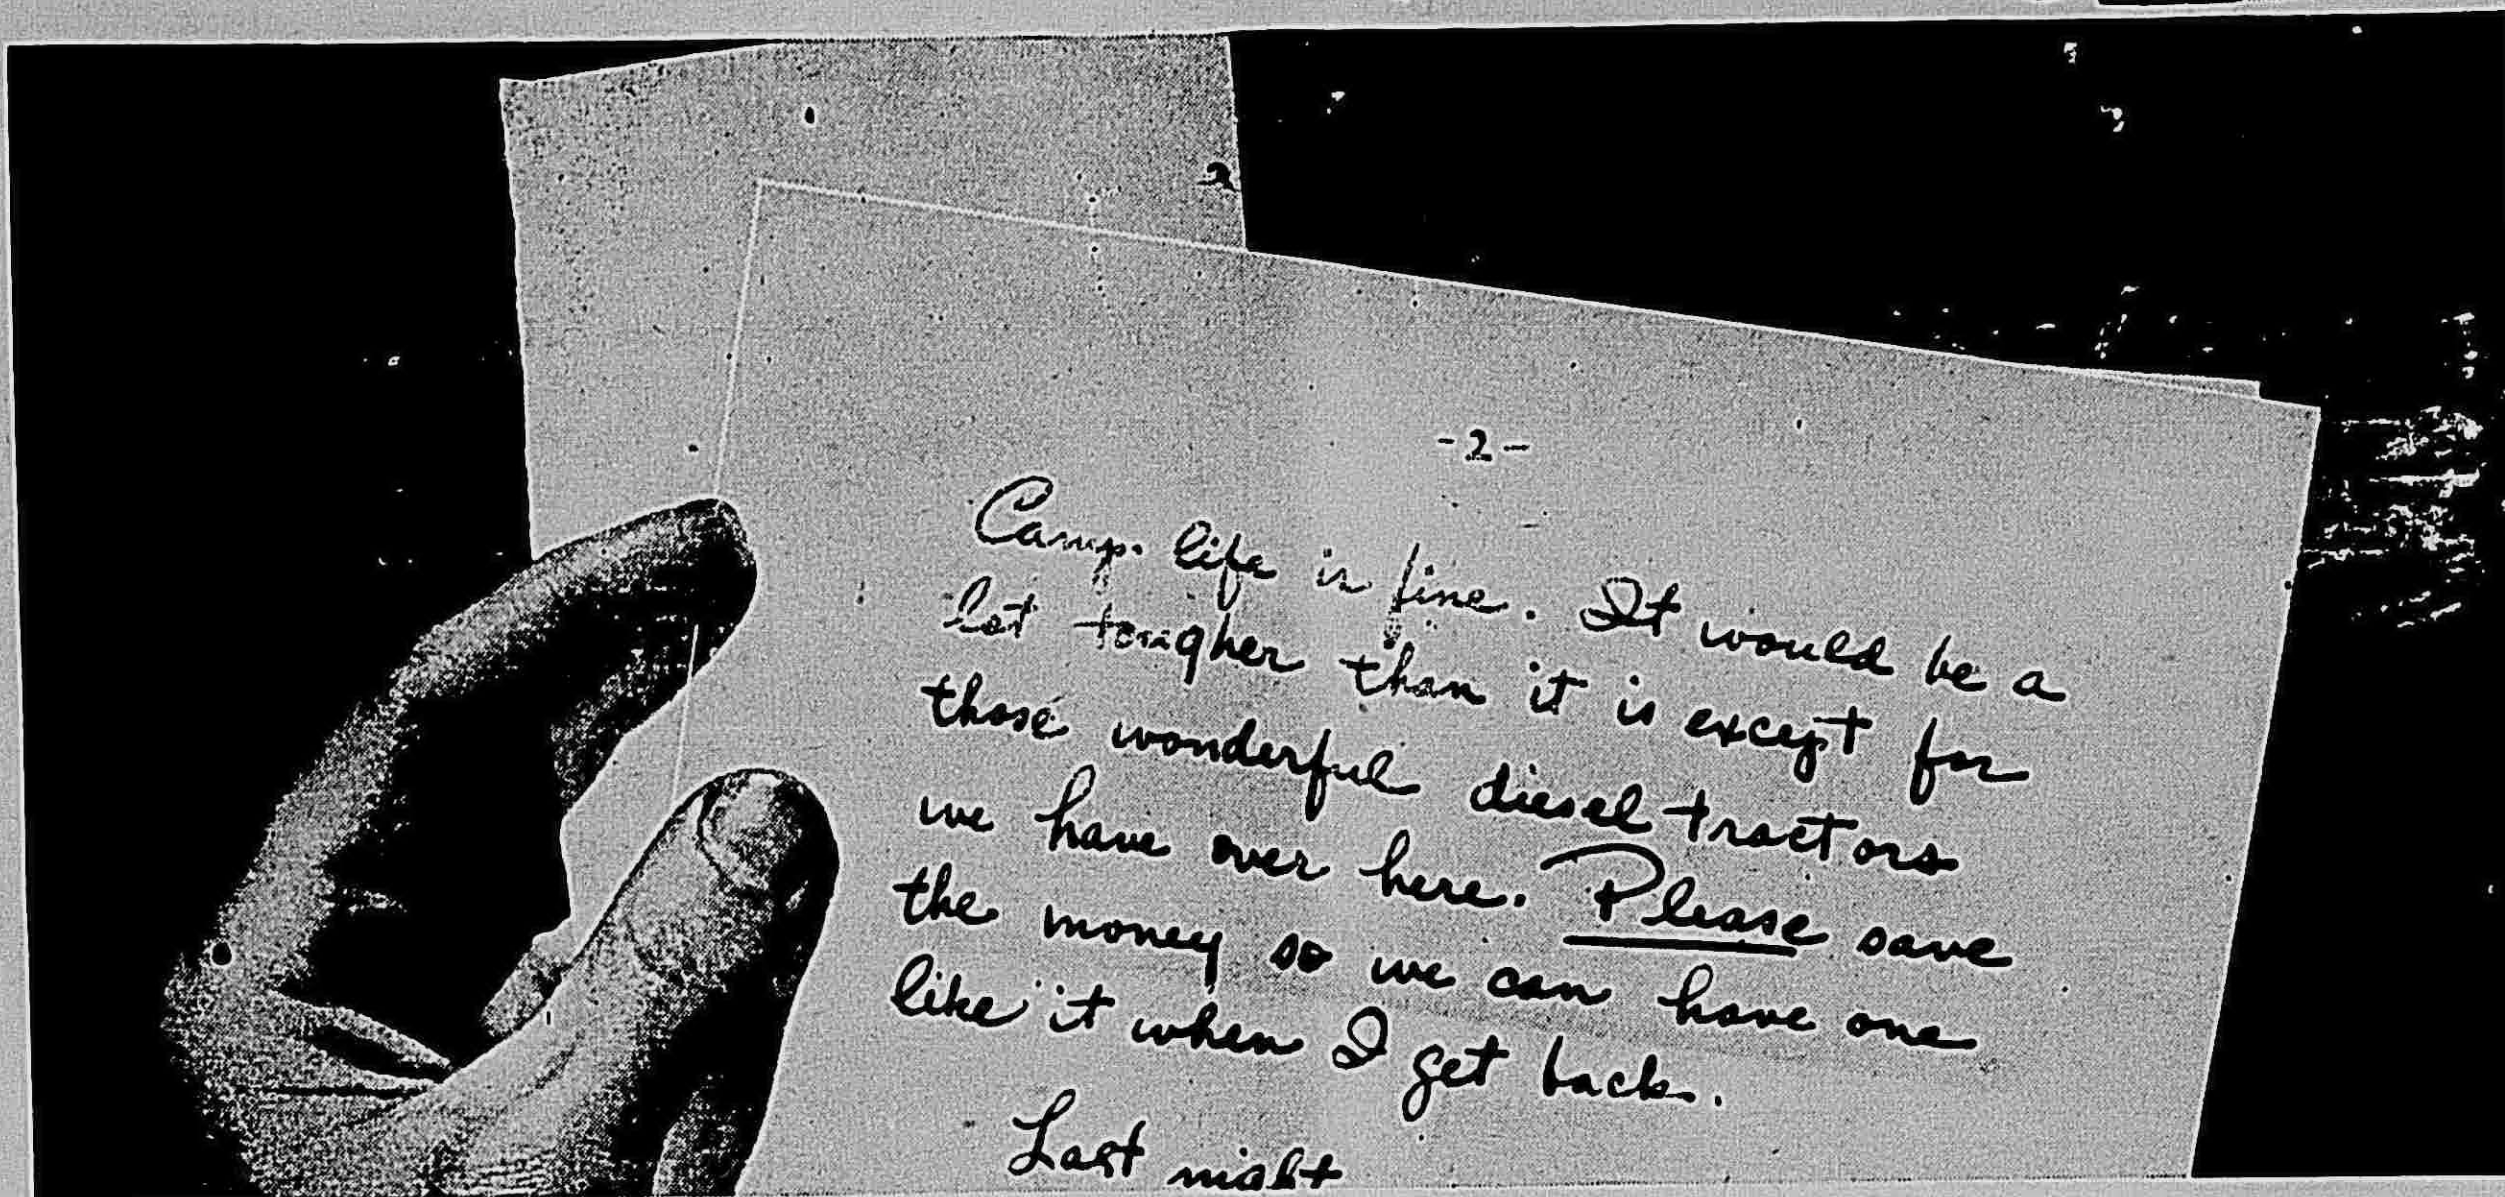 2
-2-
Camp life is fine. It would be a
lot tougher than it is except for
those wonderful diesel tractors
we have over here. Please save
the money so we can have one
like it when I get back.
Last night